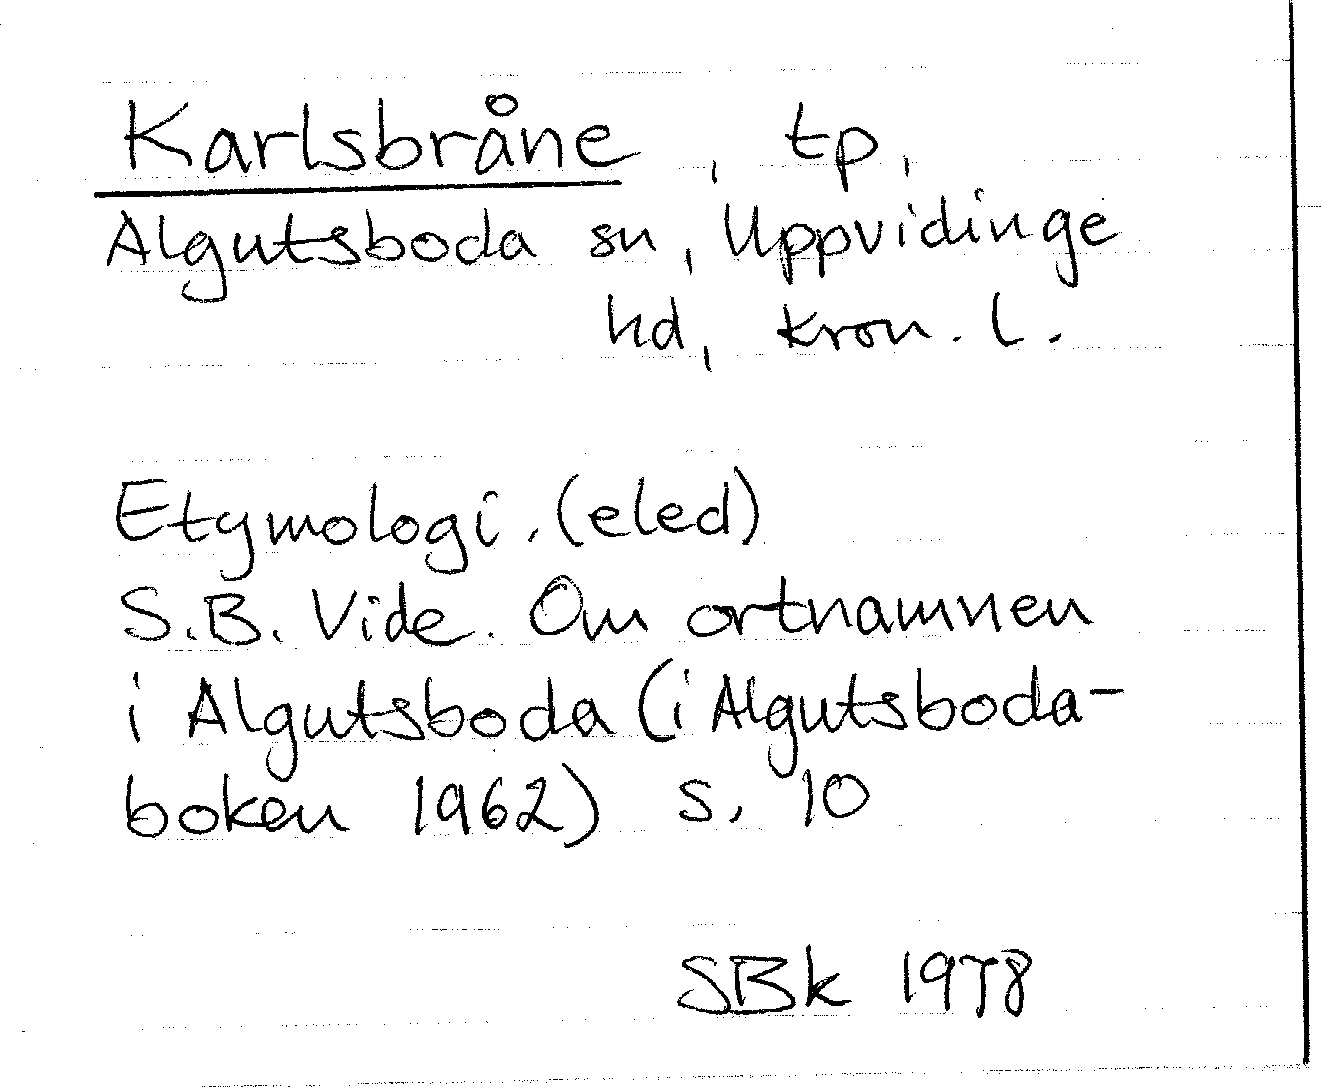 Karlsbråne, tp,
Algutsboda sn, Uppvidinge
hd, Kron. l.
Etymologi. (eled)
S.B. Vide. Om ortnamnen
i Algutsboda (i Algutsboda-
boken 1962) s. 10
SBk 1978